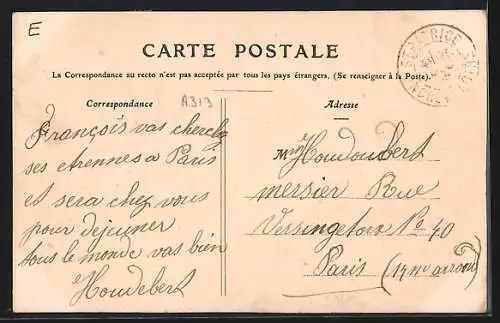 E
CARTE POSTALE
La Correspondance au recto n'est pas acceptée par tous les pays étrangers. (Se renseigner à la Poste).
Correspondance
A313
François vas cherche
ses etrennes a Paris
et sera chez vous
pour dejeuner
tous le monde vas bien
Houdebert
Adresse
Houdoubert
mersier Rue
Versingetorx No 40
Paris (14me arron)